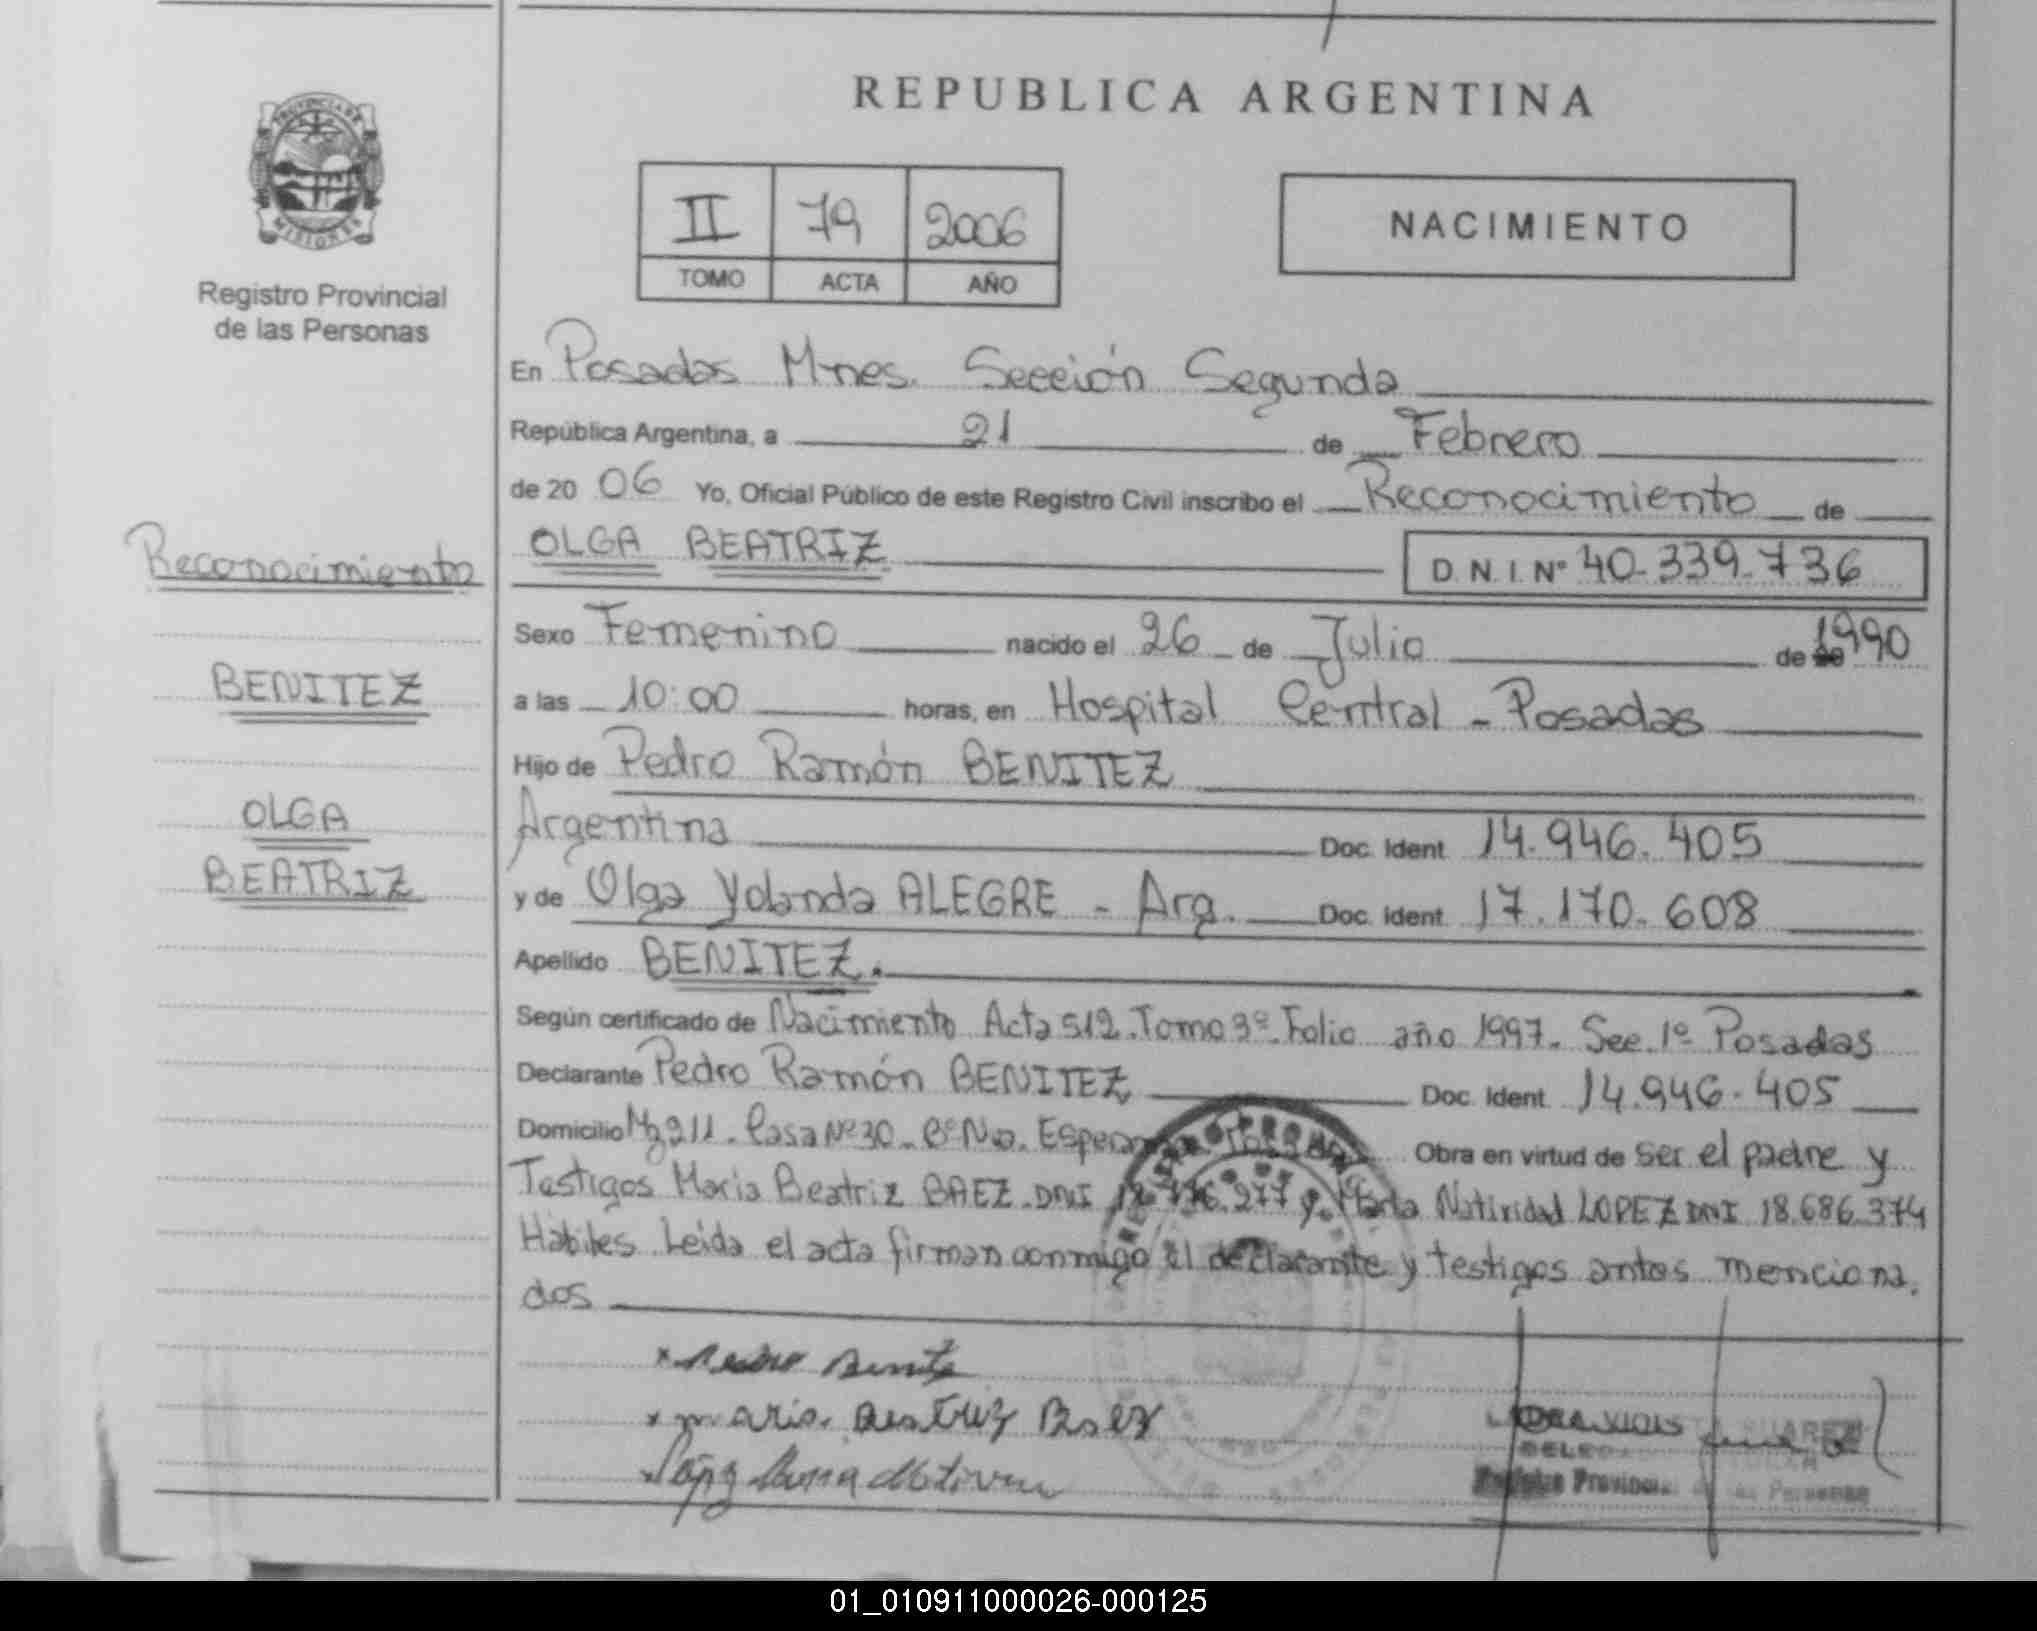 REPUBLICA ARGENTINA
PROVINCIA DE
MISIONES
Registro Provincial
de las Personas
II 79 2006
TOMO ACTA AÑO
NACIMIENTO
En Posadas Mnes. Sección Segunda
República Argentina, a 21 de Febrero
de 20 06 Yo, Oficial Público de este Registro Civil inscribo el Reconocimiento de
OLGA BEATRIZ D.N.I. Nº 40.339.736
Reconocimiento
BENITEZ
OLGA
BEATRIZ
Sexo Femenino nacido el 26 de Julio de 1990
a las 10:00 horas, en Hospital Central - Posadas
Hijo de Pedro Ramón BENITEZ
Argentina Doc. Ident. 14.946.405
y de Olga Yolanda ALEGRE - Arg. Doc. Ident. 17.170.608
Apellido BENITEZ.
Según certificado de Nacimiento Acta 512. Tomo 3º. Folio año 1997. Sec. 1º Posadas
Declarante Pedro Ramón BENITEZ Doc. Ident. 14.946.405
Domicilio Mz 211. Casa Nº 30. Bº Nva. Obra en virtud de ser el padre y
Testigos Maria Beatriz BAEZ. DNI y Marta Natividad LOPEZ DNI 18.686.374
Hábiles. Leída el acta firman conmigo el declarante y testigos antes menciona.
dos
Maria Beatriz Baez
Registro Provincial de las Personas
01_010911000026-000125